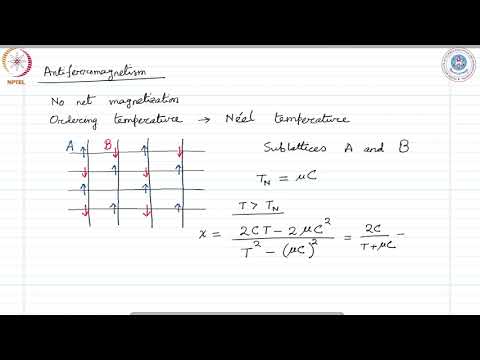 NPTEL
Antiferromagnetism
No net magnetization
Ordering temperature → Néel temperature
A B
Sublattices A and B
T_N = μC
T > T_N
χ = (2CT - 2μC²) / (T² - (μC)²) = 2C / (T + μC) -